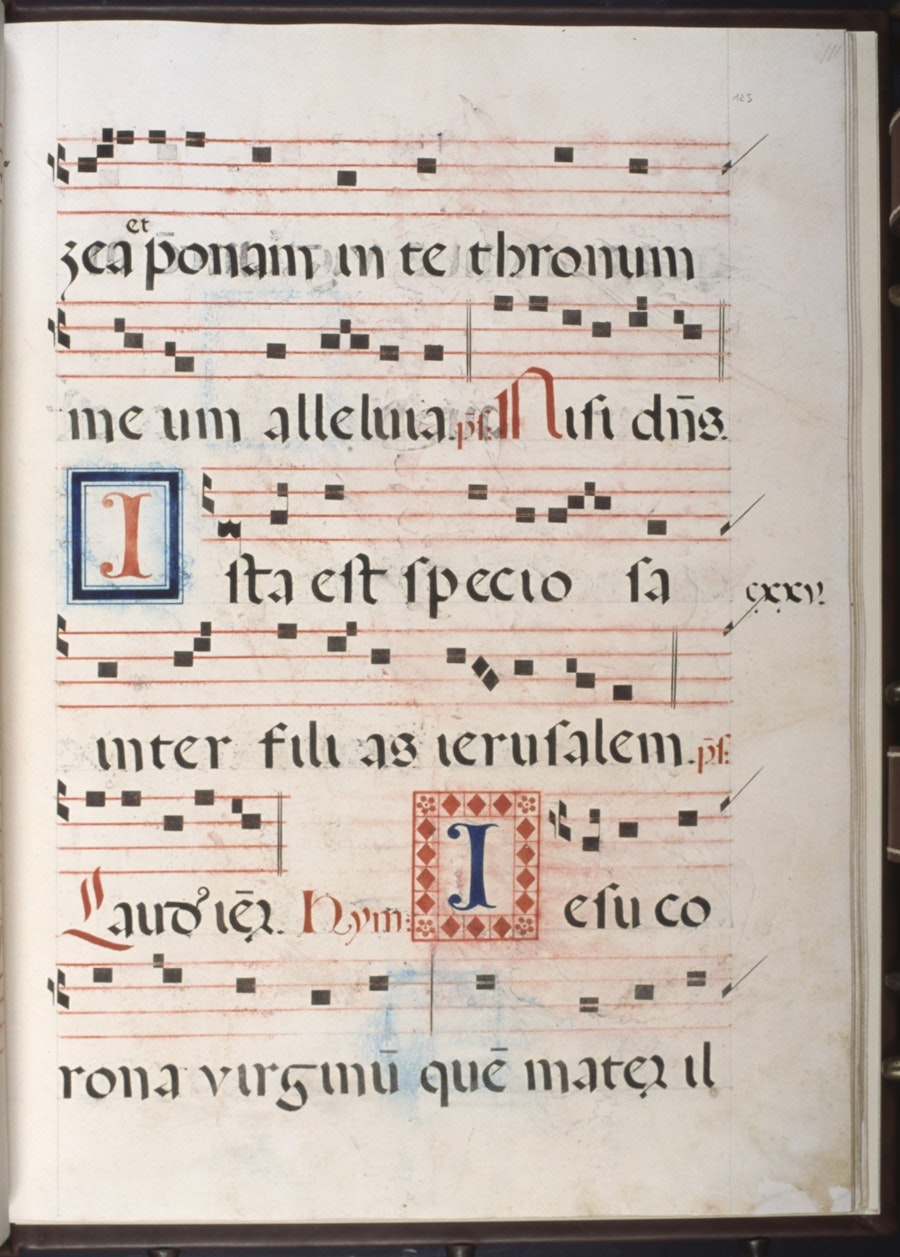 125
et
zea ponam in te thronum
me um alleluia. ps. Nisi dñs.
Ista est specio sa
cxxv.
inter fili as ierusalem. ps.
Laud' ieꝝ. Hym: Iesu co
rona virginū quē mateꝝ il